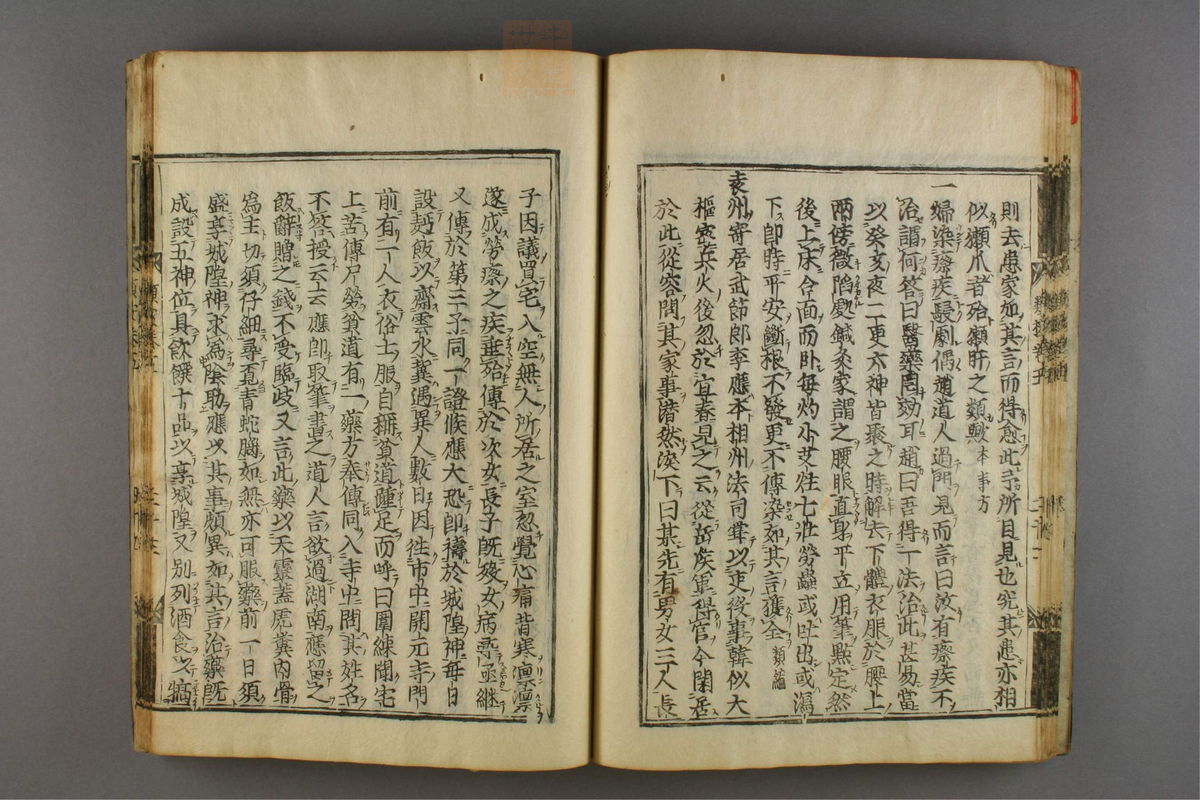 則去患家如其言而得愈此予所目見也究其患亦相
似獺爪者殆獺肝之類歟本事方
一婦染瘵疾駸劇偶趙道人過門見而言曰汝有瘵疾不
治謂何答曰醫藥罔効耳趙曰吾得一法治此甚易當
以癸亥夜二更六神皆聚之時解去下體衣服於腰上
兩傍微陷處鍼灸家謂之腰眼直身平立用筆點定然
後上床合面而卧每灼小艾炷七壯勞蠱或吐出或瀉
下即時平安斷根不發更不傳染如其言獲全類編
袁州寄居武節郎李應本相州法司掾以吏役事韓似夫
樞密兵火後忽於宜春見之云從岳侯軍得官今閑居
於此從容問其家事潸然淚下曰某先有男女三人長
子因議買宅入空無人所居之室忽覺心痛背寒凛凛
遂成勞瘵之疾垂殆傳於次女長子既歿女病亟繼
又傳於第三子同一證候應大恐即禱於城隍神每日
設麪飯以齋雲水冀遇異人數日因往市中開元寺門
前有一人衣俗士服自稱貧道踵足而呼曰團練閤宅
上苦傳尸勞貧道有一藥方奉傳同入寺中問其姓名
不答授云云應即取筆書之道人言欲過湖南應留之
飯辭贈之錢不受臨岐又言此藥以天靈蓋虎糞內骨
爲主切須仔細尋覓青蛇腦如無亦可服藥前一日須
盛享城隍神求爲陰助應以其事頗異如其言治藥既
成設五神位具飲饌十品以享城隍又別列酒食以犒